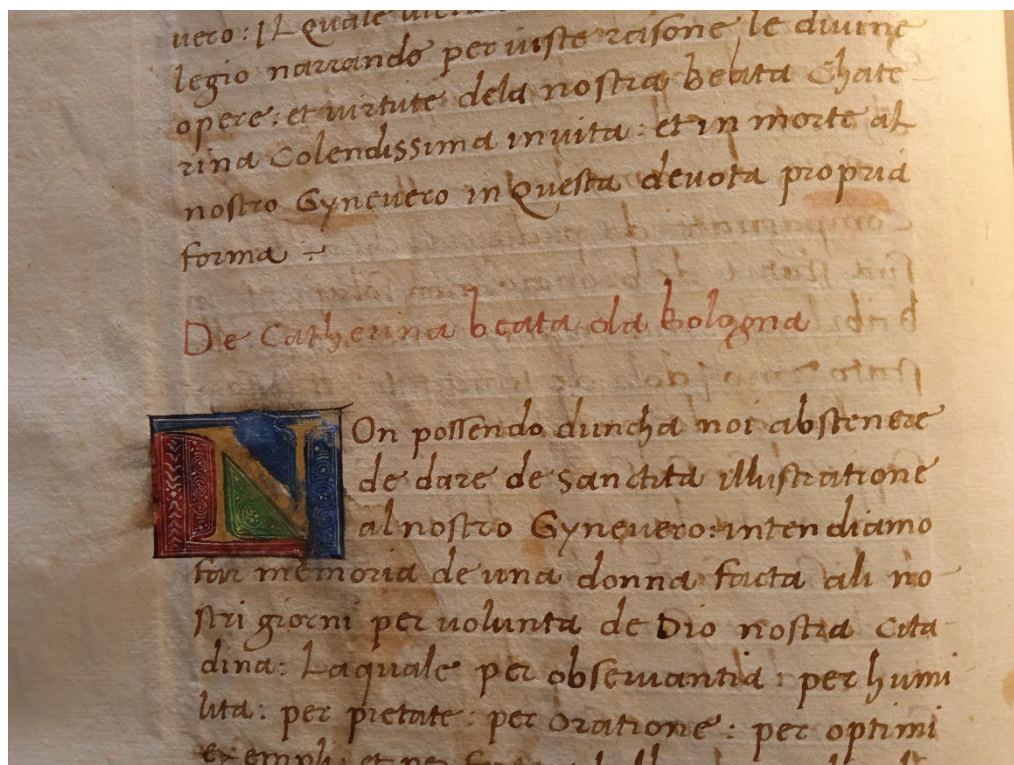 vero: IL Quale
legio narrando per iuste rasone le divine
opere: et virtute dela nostra beata Chate-
rina Colendissima in vita: et in morte al
nostro Gynevero in Questa devota propria
forma ÷
De Catherina beata da bologna
NOn possendo duncha noi abstenere
de dare de sanctità illustratione
al nostro Gynevero: intendiamo
far memoria de una donna facta ali no-
stri giorni per volunta de Dio nostra cita
dina: Laquale per observantia: per humi
lita: per pietate: per oratione: per optimi
exempli: et per